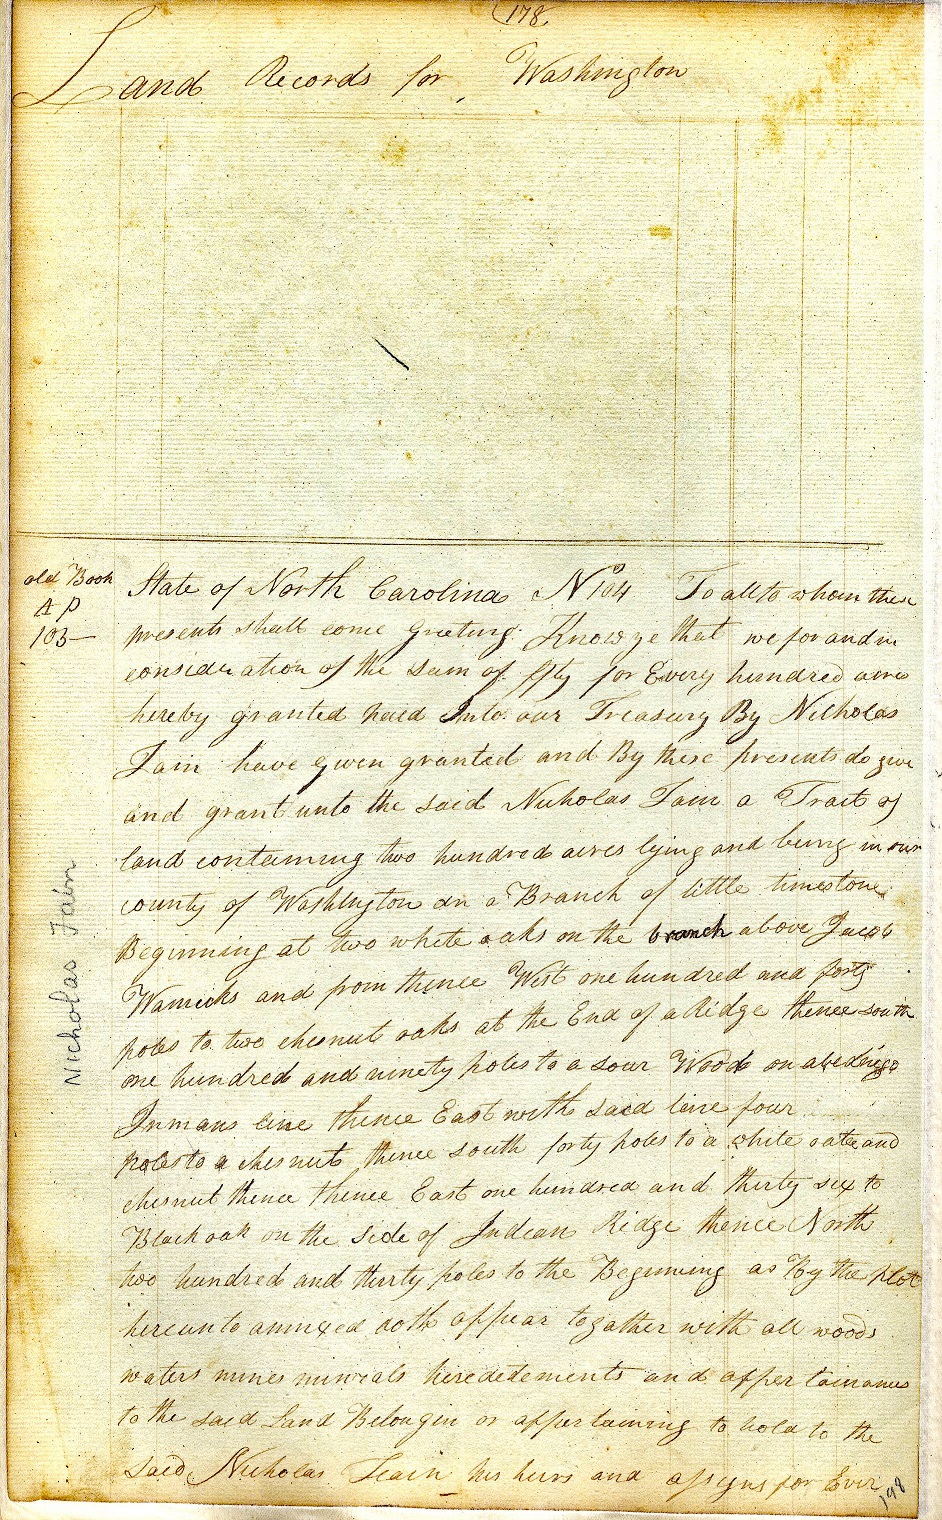 178
Land Records for Washington
old Book
A P
103—
State of North Carolina No 104 To all to whom these
presents shall come Greeting Know ye that we for and in
consideration of the sum of ffty for Every hundred acres
hereby granted paid Into our Treasury By Nicholas
Fain have given granted and By these presents do give
and grant unto the said Nicholas Fain a Tract of
land containing two hundred acres lying and being in our
county of Washington on a Branch of little limestone
Beginning at two white oaks on the branch above Jacob
Warricks and from thence West one hundred and forty
poles to two chesnut oaks at the End of a Ridge thence south
one hundred and ninety poles to a sour Wood on abednego
Inmans line thence East with said line four
poles to a chesnut thence south forty poles to a white oake and
chesnut thence thence East one hundred and thirty six to
Black oak on the side of Indian Ridge thence North
two hundred and thirty poles to the Beginning as By the plot
hereunto annexed doth appear togather with all woods
waters mines minerals heredetements and appertainances
to the said Land Belongin or appertaining to hold to the
said Nicholas Feain his heirs and assigns for Ever
Nicholas Fain
198